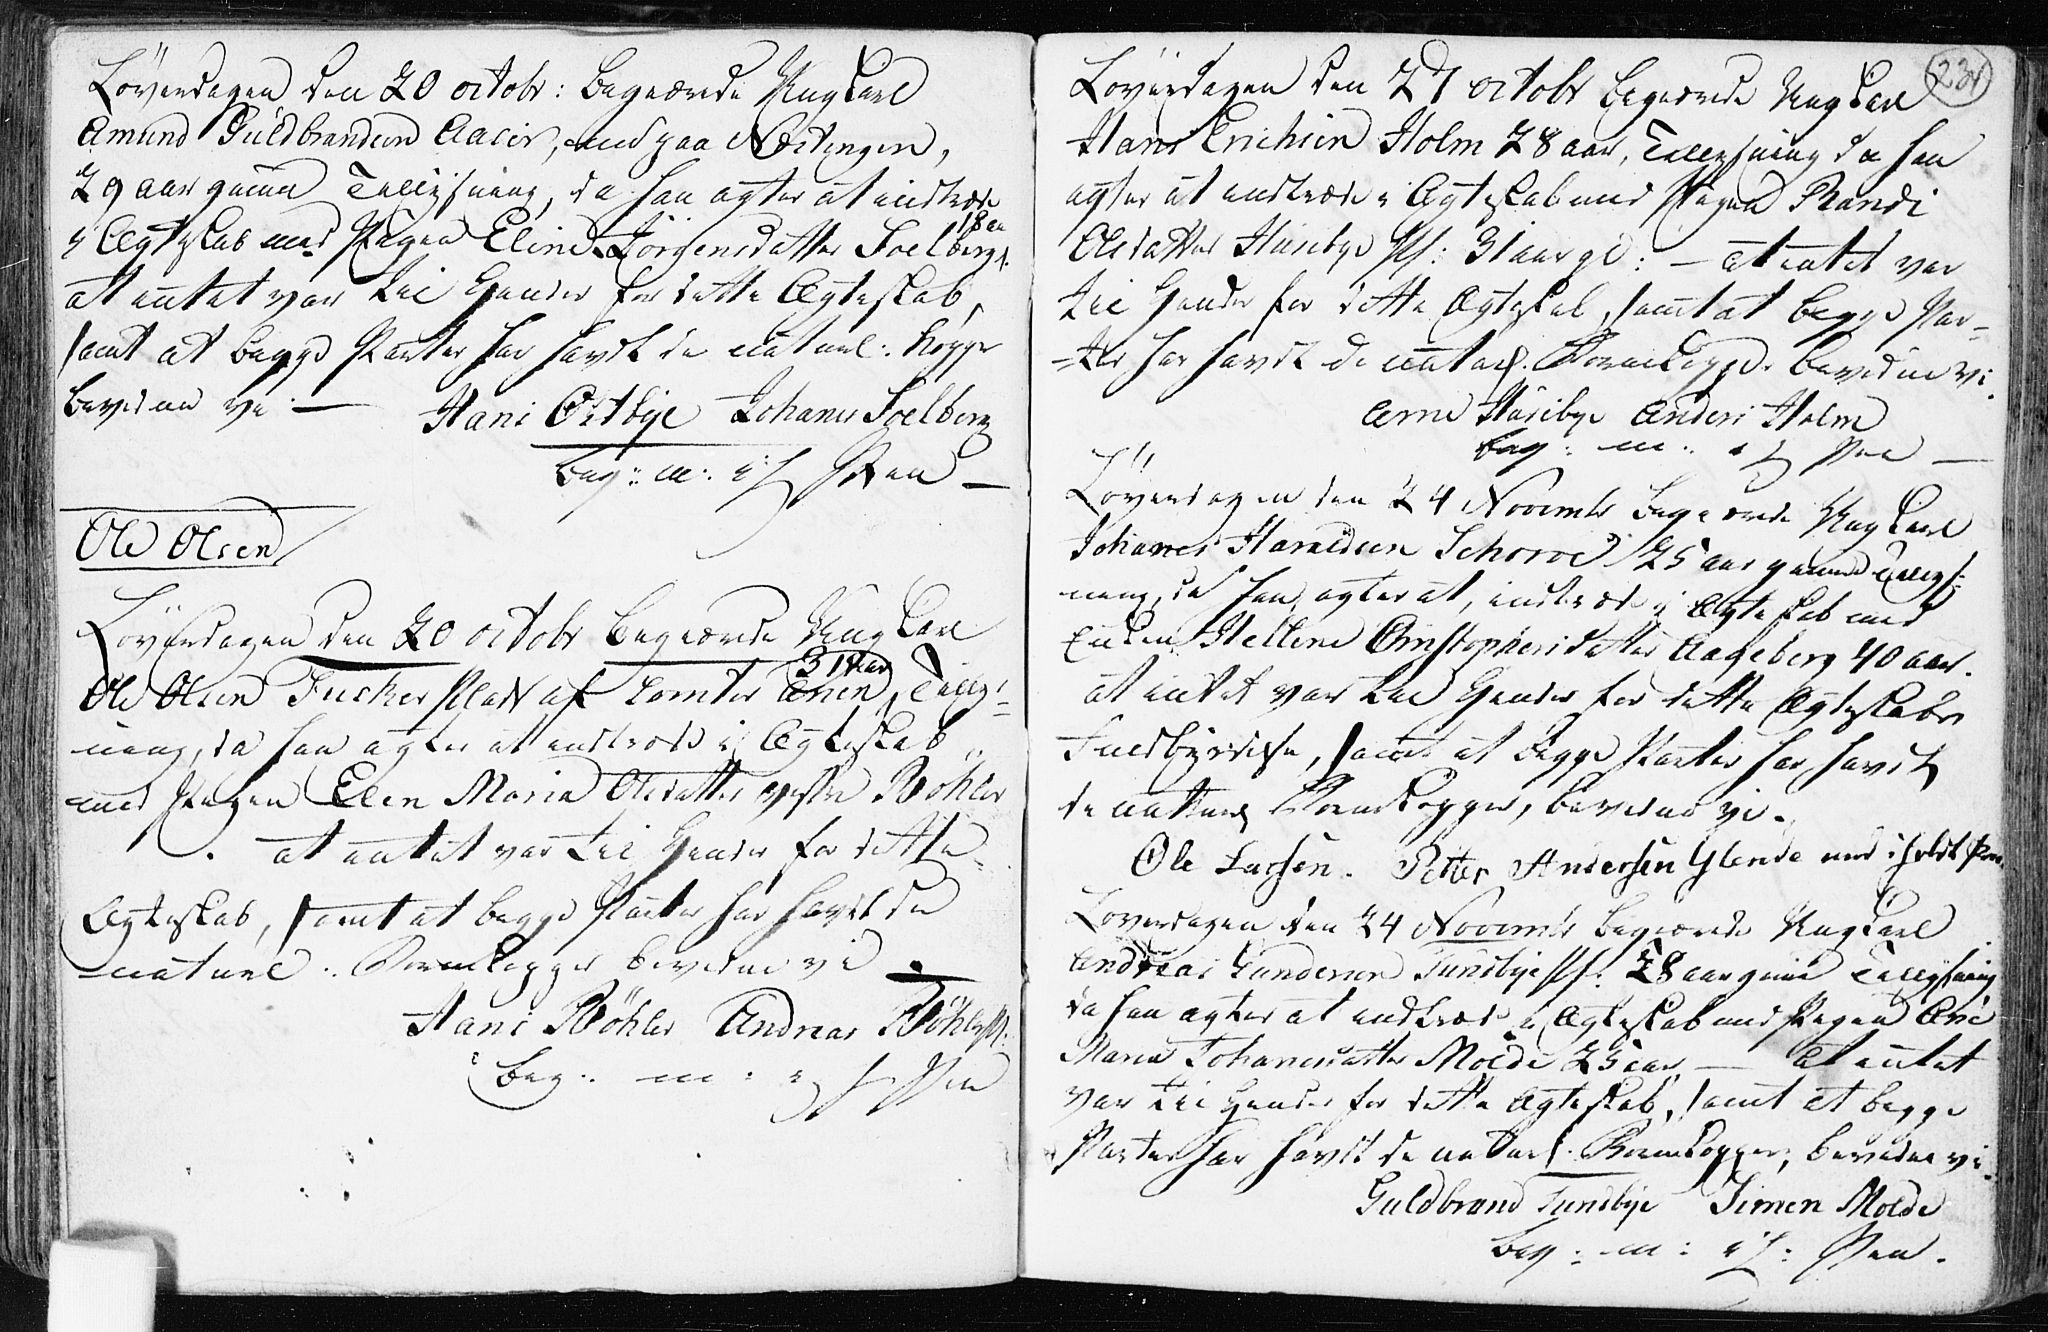 Löverdagen den 20 octobr: begiærede Ungkarl
Amund Guldbrandsen Aaser, paa Næstengen,
29 aar gamel Tillysning, da han agter at indtræde
18 aa
i Ægteskab med Pigen Eline Jörgensdatter Soelberg
at intet var til Hinder for dette Ægteskab,
samt at begge Parter har havdt de naturl: Kopper
bevidne vi. —
Hans Ostbye Johanes Soelberg
beg: m: i: h Pen —
Ole Olsen
Löverdagen den 20 octobr begiærede Ungkarl
31 aar
Ole Olsen Fusker Plads af Tomter Enen, Tillys=
ning, da han agter at indtræde i Ægteskab
med Pigen Elen Maria Olsdatter vestre Böhler
. at intet var til Hinder for dette
Ægteskab, samt at begge Parter har havdt de
naturl: Børnekopper bevidne vi .
Hans Böhler Andreas Böhler
beg: m: i h Pen
234
Löverdagen den 27 octobr begiærede Ungkarl
Hans Erichsen Holm 28 aar, Tillysning da han
agter at indtræde i Ægteskab med Pigen Randi
Olsdatter Husebye 31 aar gl: — at intet var
til Hinder for dette Ægteskab, samt at begge Par=
=ter har havdt de naturl. Børnekopper bevidne vi.
Arne Husebye Anders Holm
beg: m: i h Pen —
Löverdagen den 24 Novembr begiærede Ungkarl
Johanes Haraldsen Schorve 25 aar gamel Tillys=
ning, da han agter at, indtræde i Ægteskab med
Enken Hellene Christophersdatter Aageberg 40 aar.
at intet var til Hinder for dette Ægteskabs
Fuldbyrdelse, samt at begge Parter har havdt
de naturl Børnekopper, bevidne vi.
Ole Larsen. Petter Andersen Glende med iholdt Pen.
Löverdagen den 24 Novembr begiærede Ungkarl
Andreas Gundersen Sundbye 28 aar gamel Tillysning
da han agter at indtræde i Ægteskab med Pigen Ane
Maria Johanesdatter Molde 25 aar — at intet
var til Hinder for dette Ægteskab, samt at begge
Parter har havdt de naturl. Børnekopper, bevidne vi.
Guldbrand Sundbye Simen Molde
beg: m: i h: Pen.